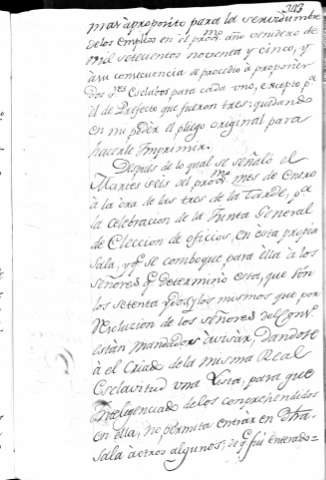 343
mas aproposito para la servidumbre
de los empleos en el proxmo. año venidero de
mil setecientos noventa y cinco, y
à su consecuencia se procedio à proponer
Dos Sres. Esclavos para cada uno, excepto pa.
el de Prefecto que fueron tres: quedando
en mi poder el pliego original para
hacerle Imprimir.
Despues de lo qual se señaló el
Martes seis del proxmo. mes de Enero
à la ora de las tres de la tarde, pa.
la celebracion de la Junta General
de Eleccion de oficios, en esta propia
sala, y qe. se comboque para ella à los
señores qe. determinó esta, que son
los setenta y dos los mismos que por
resolucion de los señores del Conv.
estàn mandados àvisàr, dandose
à el Criado de la misma Real
Esclavitud una Lista, para que
Inteligenciado de los comprehendidos
en ella, no permita entràr en dha.
sala à otros algunos, de qe. fui enterado=